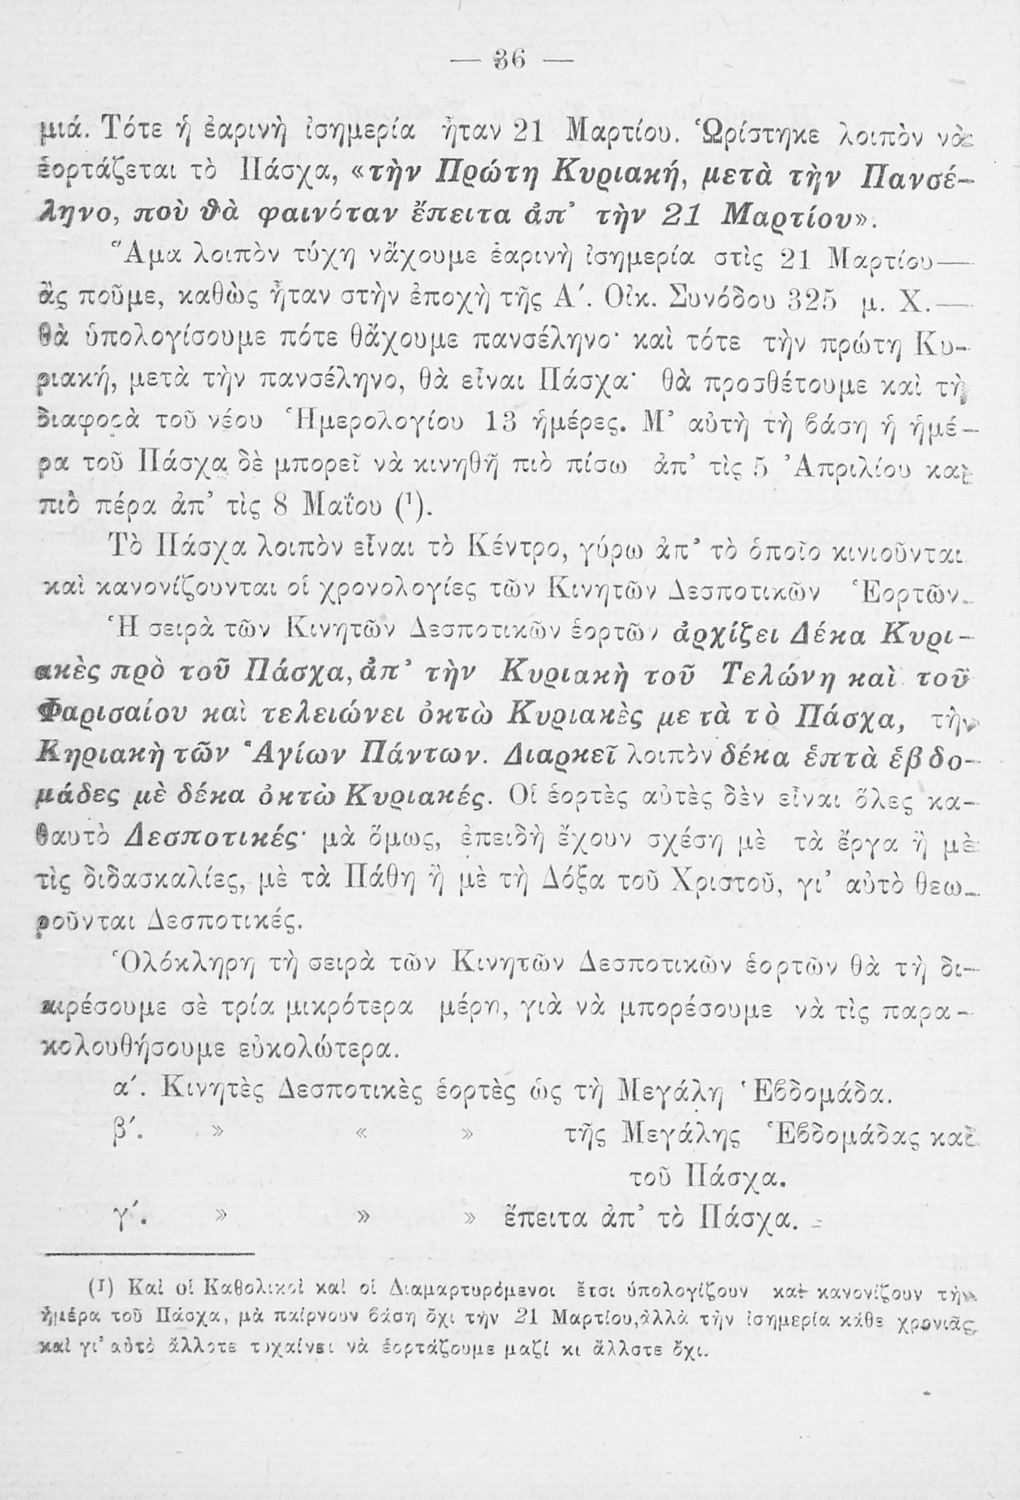 — 36 —
μιά. Τότε ἡ ἐαρινὴ ἰσημερία ἦταν 21 Μαρτίου. Ὡρίστηκε λοιπὸν νὰ
ἑορτάζεται τὸ Πάσχα, «τὴν Πρώτη Κυριακή, μετὰ τὴν Πανσέ-
ληνο, ποὺ θὰ φαινόταν ἔπειτα ἀπ’ τὴν 21 Μαρτίου».
Ἅμα λοιπὸν τύχη νἄχουμε ἐαρινὴ ἰσημερία στὶς 21 Μαρτίου—
ἂς ποῦμε, καθὼς ἦταν στὴν ἐποχὴ τῆς Α΄. Οἰκ. Συνόδου 325 μ. Χ.—
θὰ ὑπολογίσουμε πότε θἄχουμε πανσέληνο· καὶ τότε τὴν πρώτη Κυ-
ριακή, μετὰ τὴν πανσέληνο, θὰ εἶναι Πάσχα· θὰ προσθέτουμε καὶ τὴ
διαφορὰ τοῦ νέου Ἡμερολογίου 13 ἡμέρες. Μ’ αὐτὴ τὴ βάση ἡ ἡμέ-
ρα τοῦ Πάσχα δὲ μπορεῖ νὰ κινηθῆ πιὸ πίσω ἀπ’ τὶς 5 Ἀπριλίου καὶ
πιὸ πέρα ἀπ’ τὶς 8 Μαΐου (¹).
Τὸ Πάσχα λοιπὸν εἶναι τὸ Κέντρο, γύρω ἀπ’ τὸ ὁποῖο κινιοῦνται
καὶ κανονίζουνται οἱ χρονολογίες τῶν Κινητῶν Δεσποτικῶν Ἑορτῶν.
Ἡ σειρὰ τῶν Κινητῶν Δεσποτικῶν ἑορτῶν ἀρχίζει Δέκα Κυρι-
ακὲς πρὸ τοῦ Πάσχα, ἀπ’ τὴν Κυριακὴ τοῦ Τελώνη καὶ τοῦ
Φαρισαίου καὶ τελειώνει ὀκτὼ Κυριακὲς μετὰ τὸ Πάσχα, τὴν
Κηριακὴ τῶν Ἁγίων Πάντων. Διαρκεῖ λοιπὸν δέκα ἑπτὰ ἑβδο-
μάδες μὲ δέκα ὀκτὼ Κυριακές. Οἱ ἑορτὲς αὐτὲς δὲν εἶναι ὅλες κα-
θαυτὸ Δεσποτικές· μὰ ὅμως, ἐπειδὴ ἔχουν σχέση μὲ τὰ ἔργα ἢ μὲ
τὶς διδασκαλίες, μὲ τὰ Πάθη ἢ μὲ τὴ Δόξα τοῦ Χριστοῦ, γι’ αὐτὸ θεω-
ροῦνται Δεσποτικές.
Ὁλόκληρη τὴ σειρὰ τῶν Κινητῶν Δεσποτικῶν ἑορτῶν θὰ τὴ δι-
αιρέσουμε σὲ τρία μικρότερα μέρη, γιὰ νὰ μπορέσουμε νὰ τὶς παρα-
κολουθήσουμε εὐκολώτερα.
α΄. Κινητὲς Δεσποτικὲς ἑορτὲς ὡς τὴ Μεγάλη Ἑβδομάδα.
β΄. » « » τῆς Μεγάλης Ἑβδομάδας καὶ
τοῦ Πάσχα.
γ΄. » » » ἔπειτα ἀπ’ τὸ Πάσχα.
(1) Καὶ οἱ Καθολικοὶ καὶ οἱ Διαμαρτυρόμενοι ἔτσι ὑπολογίζουν καὶ κανονίζουν τὴν
ἡμέρα τοῦ Πάσχα, μὰ παίρνουν βάση ὄχι τὴν 21 Μαρτίου, ἀλλὰ τὴν ἰσημερία κάθε χρονιᾶς
καὶ γι’ αὐτὸ ἄλλοτε τυχαίνει νὰ ἑορτάζουμε μαζὶ κι ἄλλοτε ὄχι.